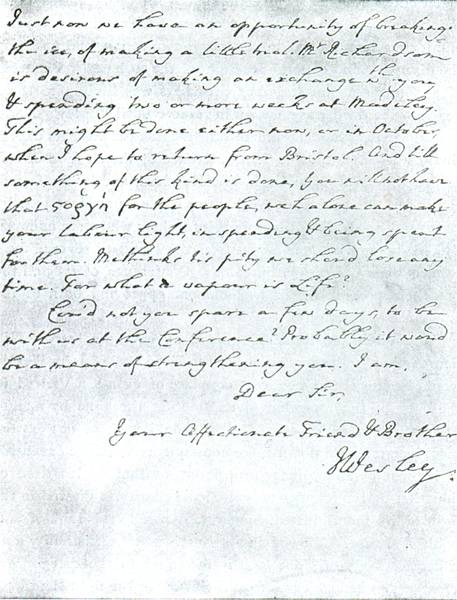 Just now we have an opportunity of breaking
the ice, of making a little trial. Mr Richardson
is desirous of making an exchange wth you
& spending two or more weeks at Madeley.
This might be done either now, or in October,
when I hope to return from Bristol. And till
something of this kind is done, you will not have
that ςοργὴ for the people, wch alone can make
your labour light, in spending & being spent
for them. Methinks 'tis pity we shoud lose any
time. For what a vapour is Life?
Coud not you spare a few days, to be
with us at the Conference? Probably it woud
be a means of strengthening you. I am,
Dear Sir,
Your Affectionate Friend & Brother
JWesley.